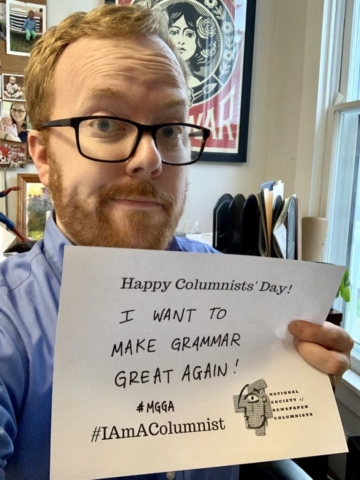 WAR
Happy Columnists' Day!
I WANT TO
MAKE GRAMMAR
GREAT AGAIN!
#MGGA
#IAmAColumnist
NATIONAL
SOCIETY of
NEWSPAPER
COLUMNISTS